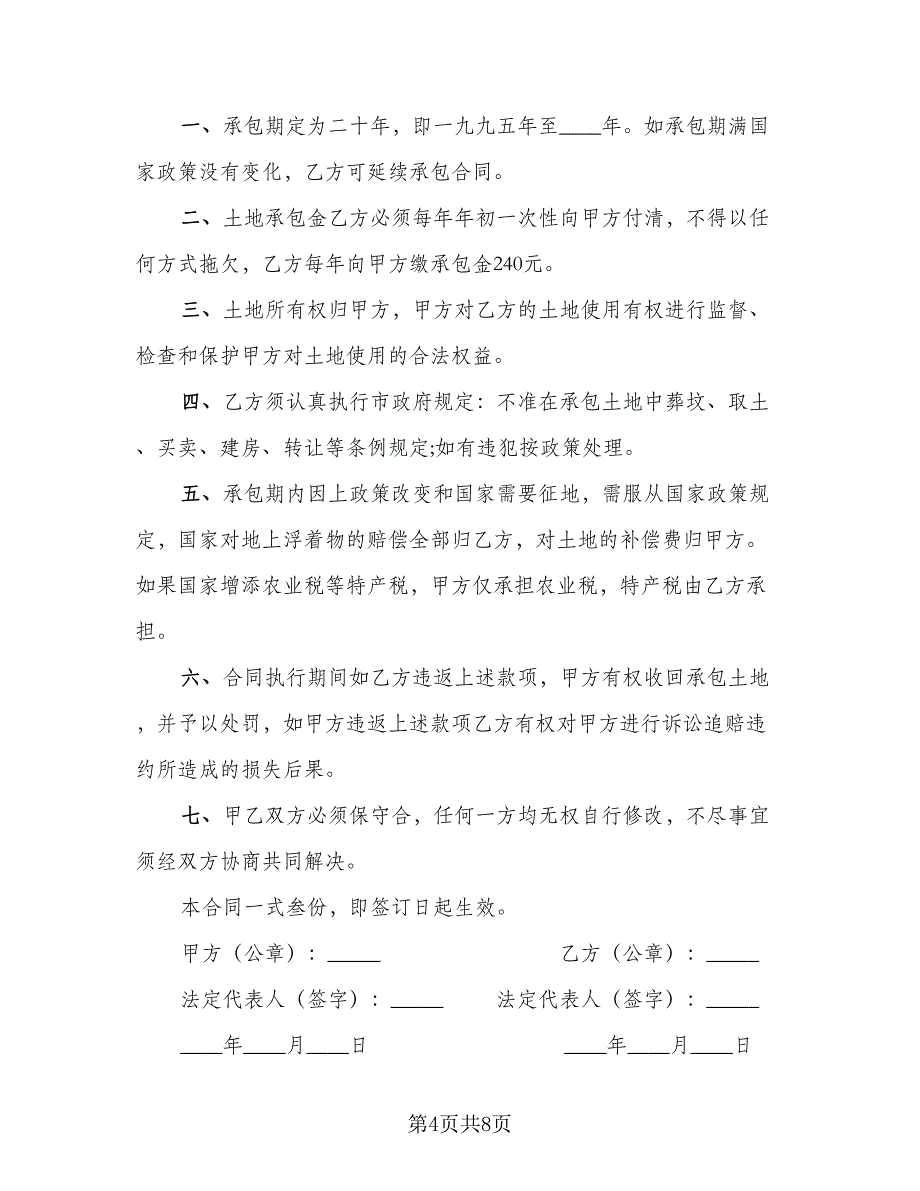 一、承包期定为二十年，即一九九五年至____年。如承包期满国
家政策没有变化，乙方可延续承包合同。
二、土地承包金乙方必须每年年初一次性向甲方付清，不得以任
何方式拖欠，乙方每年向甲方缴承包金240元。
三、土地所有权归甲方，甲方对乙方的土地使用有权进行监督、
检查和保护甲方对土地使用的合法权益。
四、乙方须认真执行市政府规定：不准在承包土地中葬坟、取土
、买卖、建房、转让等条例规定;如有违犯按政策处理。
五、承包期内因上政策改变和国家需要征地，需服从国家政策规
定，国家对地上浮着物的赔偿全部归乙方，对土地的补偿费归甲方。
如果国家增添农业税等特产税，甲方仅承担农业税，特产税由乙方承
担。
六、合同执行期间如乙方违返上述款项，甲方有权收回承包土地
，并予以处罚，如甲方违返上述款项乙方有权对甲方进行诉讼追赔违
约所造成的损失后果。
七、甲乙双方必须保守合，任何一方均无权自行修改，不尽事宜
须经双方协商共同解决。
本合同一式叁份，即签订日起生效。
甲方（公章）：_____ 乙方（公章）：_____
法定代表人（签字）：_____ 法定代表人（签字）：_____
____年____月____日 ____年____月____日
第4页共8页